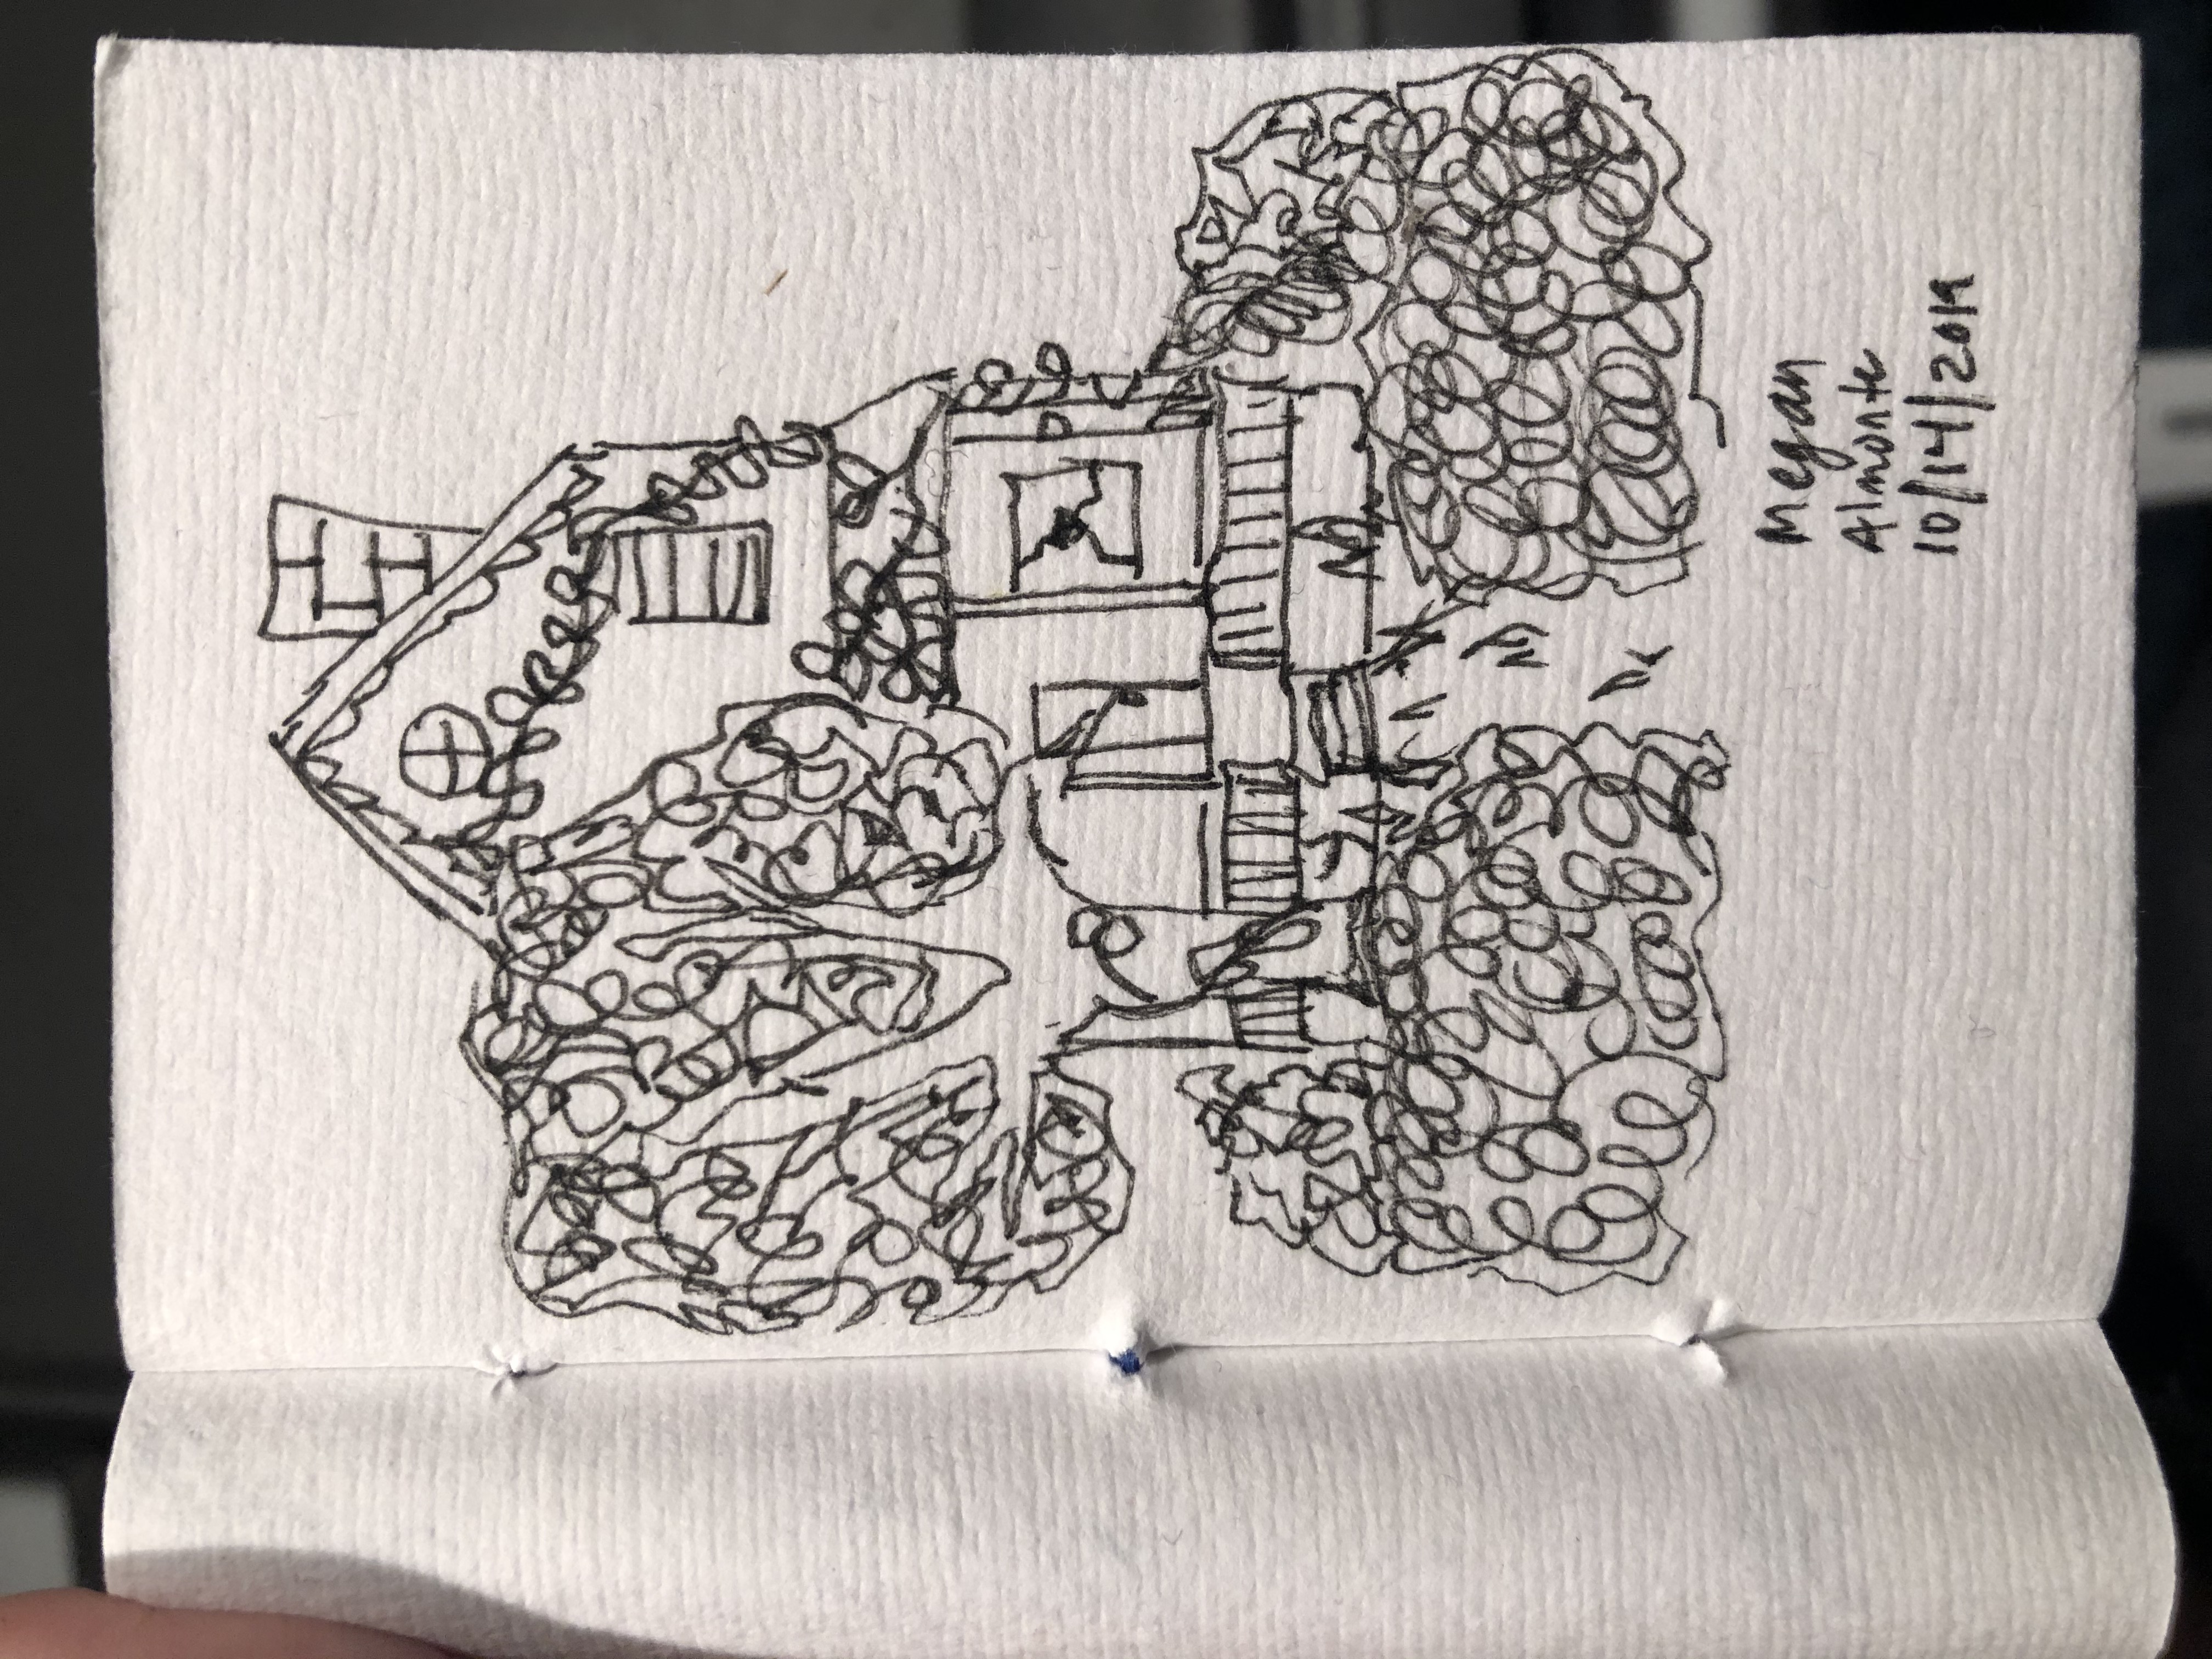 Megan
Almonte
10/14/2019